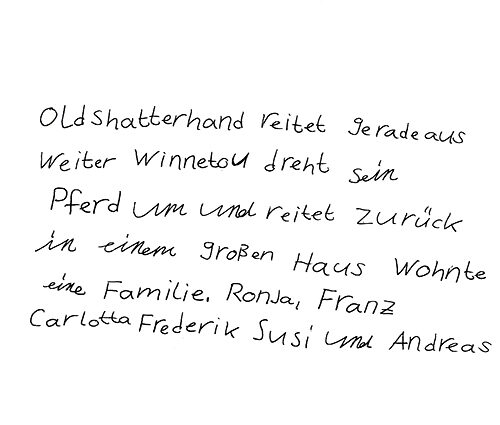 Oldshatterhand reitet geradeaus
weiter Winnetou dreht sein
Pferd um und reitet zurück
in einem großen Haus wohnte
eine Familie. Ronja, Franz
Carlotta Frederik Susi und Andreas